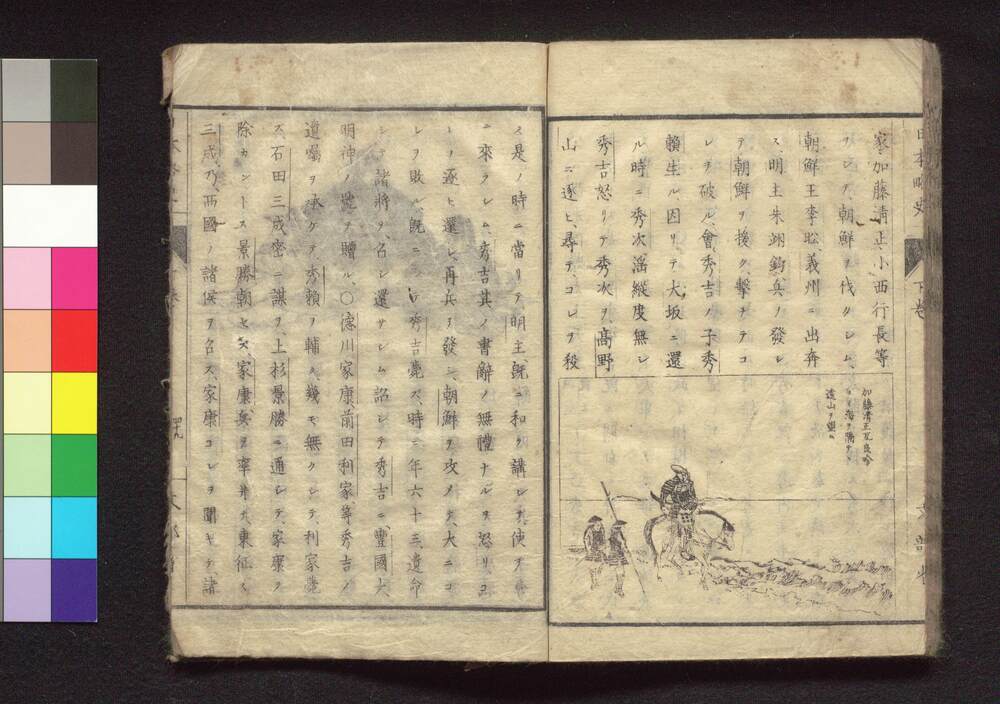 家、加藤清正、小西行長等
ヲシテ、朝鮮ヲ伐タシム、
朝鮮王李昖、義州ニ出奔
ス、明主朱翊鈞、兵ヲ發シ
テ朝鮮ヲ援ク、撃チテコ
レヲ破ル會秀吉ノ子秀
頼生ル、因リテ大坂ニ還
ル時ニ秀次淫縦度無シ
秀吉怒リテ秀次ヲ、高野
山ニ逐ヒ、尋テコレヲ殺
加藤清正兀良哈
ヨリ海ヲ隔テ
遠山ヲ望ム
ノ是ノ時ニ當リテ明主、既ニ和ヲ講シテ、使ヲ
ニ來ラシム、秀吉其ノ書辭ノ無禮ナルヲ怒リコ
ヲ逐ヒ還シ、再兵ヲ發シ、朝鮮ヲ攻メ大ニコ
レヲ敗ル既ニシ秀吉薨ス、時ニ年六十三、遺命
シテ諸將ヲ召シ還サシム詔シテ秀吉ニ、豐國大
明神ノ號ヲ贈ル、〇德川家康、前田利家、等秀吉ノ
遺囑ヲ承ケテ、秀頼ヲ輔ク幾モ無クシテ、利家薨
ス、石田三成密ニ謀ヲ、上杉景勝ニ通シテ、家康ヲ
除カントス景勝朝セス、家康、兵ヲ率井テ、東征ス
三成、乃西國ノ諸侯ヲ召ス、家康コレヲ聞キテ諸
日本略史
下卷
文部省